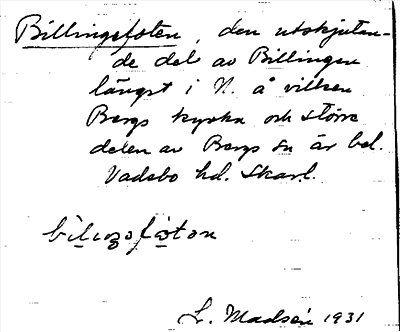 Billingsfoten, den utskjutan-
de del av Billingen
längst i N. å vilken
Bergs kyrka och större
delen av Bergs sn är bel.
Vadsbo hd. Skarb.
L. Madsén 1931